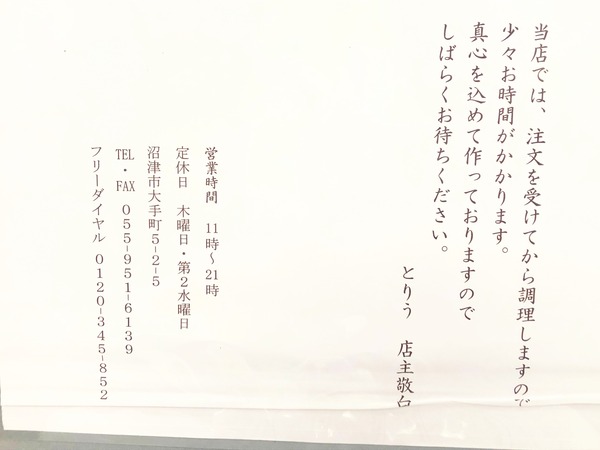 当店では、注文を受けてから調理しますので
少々お時間がかかります。
真心を込めて作っておりますので
しばらくお待ちください。
とりう 店主敬白
営業時間 11時～21時
定休日 木曜日・第2水曜日
沼津市大手町5-2-5
TEL・FAX 055-951-6139
フリーダイヤル 0120-345-852